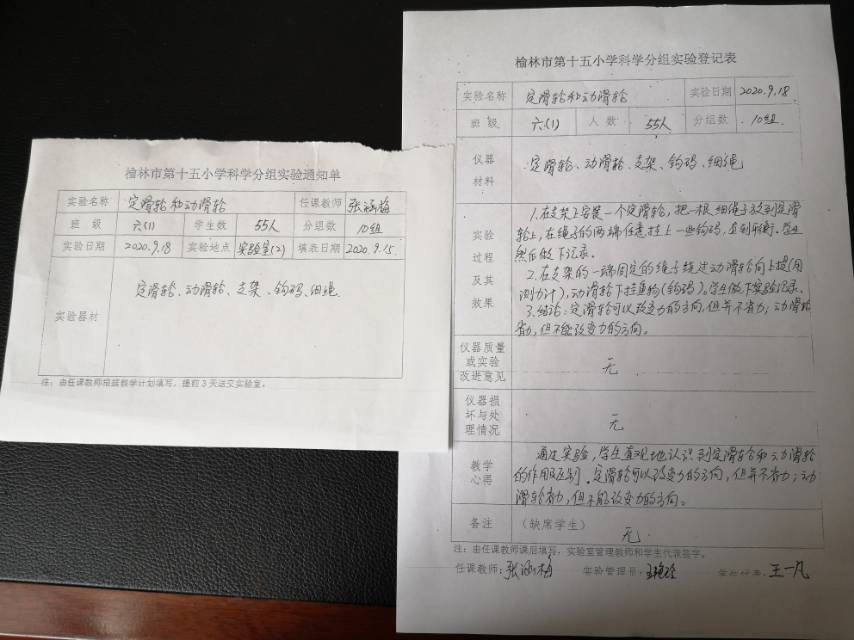 榆林市第十五小学科学分组实验通知单
实验名称 定滑轮和动滑轮 任课教师 张涵梅
班 级 六(1) 学生数 55人 分组数 10组
实验日期 2020.9.18 实验地点 实验室(2) 填表日期 2020.9.15
实验器材 定滑轮、动滑轮、支架、钩码、细绳
注：由任课教师根据教学计划填写，提前3天送交实验室。
榆林市第十五小学科学分组实验登记表
实验名称 定滑轮和动滑轮 实验日期 2020.9.18
班 级 六(1) 人 数 55人 分组数 10组
仪器
材料
定滑轮、动滑轮、支架、钩码、细绳
实验
过程
及其
效果
1.在支架上安装一个定滑轮，把一根细绳子放到定滑
轮上，在绳子的两端任意挂上一些钩码，直到平衡。
然后做下记录。
2.在支架的一端固定的绳子绕过动滑轮向上提(用
测力计)，动滑轮下挂重物(钩码)，学生做下实验记录。
3.结论：定滑轮可以改变力的方向，但并不省力；动滑轮
省力，但不能改变力的方向。
仪器质量
或实验
改进意见
无
仪器损
坏与处
理情况
无
教学
心得
通过实验，学生直观地认识到定滑轮和动滑轮
的作用及区别。定滑轮可以改变力的方向，但并不省力；动
滑轮省力，但不能改变力的方向。
备注 （缺席学生） 无
注：由任课教师课后填写，实验室管理教师和学生代表签字。
任课教师：张涵梅 实验管理员： 学生代表：王一凡